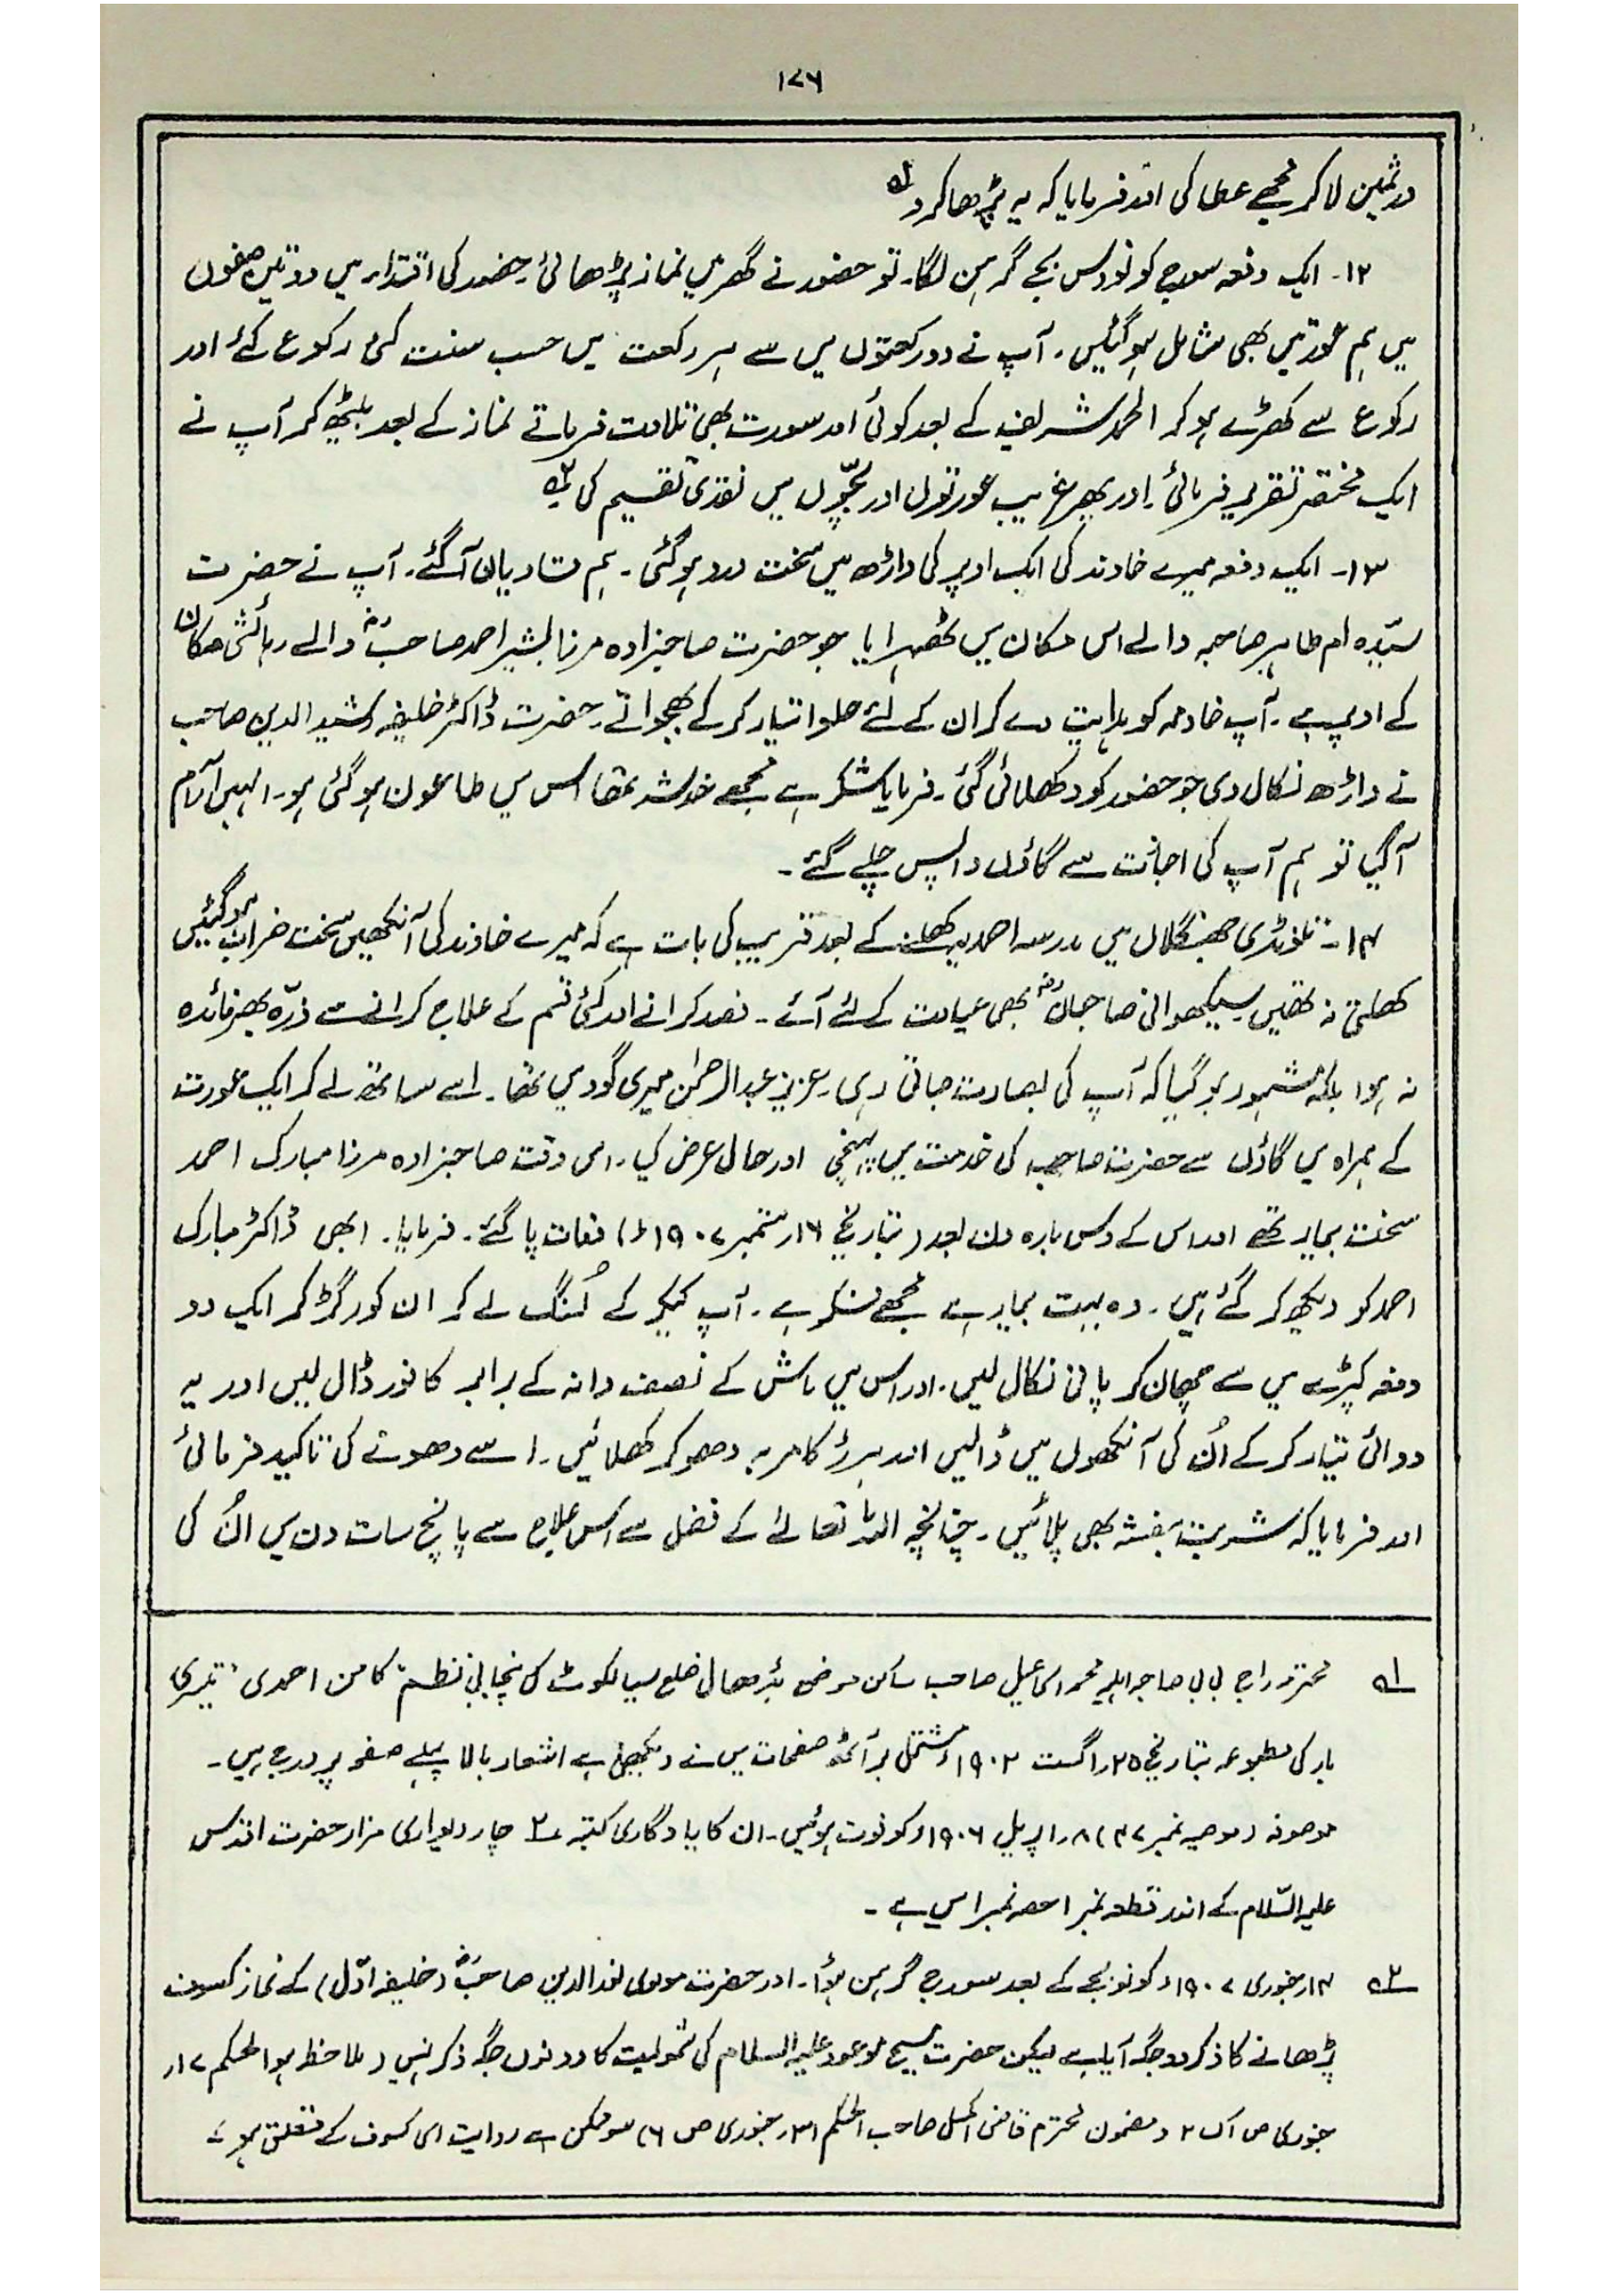 ۱۷۶
درثمین لا کر مجھے عطا کی اور فرمایا کہ یہ پڑھا کرو۔ ؎۱
۱۲۔ ایک دفعہ سورج کو نو دس بجے گرہن لگا۔ تو حضور نے گھر میں نماز پڑھائی۔ حضور کی اقتداء میں دو تین صفوں
میں ہم عورتیں بھی شامل ہوگئیں۔ آپ نے دو رکعتوں میں سے ہر رکعت میں حسب سنت کئی رکوع کئے اور
رکوع سے کھڑے ہو کر الحمد شریف کے بعد کوئی اور سورت بھی تلاوت فرماتے نماز کے بعد بیٹھ کر آپ نے
ایک مختصر تقریر فرمائی۔ اور پھر غریب عورتوں اور بچّوں میں نقدی تقسیم کی ؎۲
۱۳۔ ایک دفعہ میرے خاوند کی ایک اوپر کی داڑھ میں سخت درد ہوگئی۔ ہم قادیان آگئے۔ آپ نے حضرت
سیّدہ ام طاہر صاحبہ والے اس مکان میں ٹھہرایا جو حضرت صاحبزادہ مرزا بشیر احمد صاحبؓ والے رہائشی مکان
کے اوپر ہے۔ آپ خادمہ کو ہدایت دے کر ان کے لئے حلوا تیار کر کے بھجواتے۔ حضرت ڈاکٹر خلیفہ رشید الدین صاحب
نے داڑھ نکال دی جو حضور کو دکھلائی گئی۔ فرمایا شکر ہے مجھے خدشہ تھا اس میں طاعون ہو گئی ہو۔ انہیں آرام
آگیا تو ہم آپ کی اجازت سے گاؤں واپس چلے گئے۔
۱۴۔ تلونڈی جھنگلاں میں مدرسہ احمدیہ کھلنے کے بعد قریب کی بات ہے کہ میرے خاوند کی آنکھیں سخت خراب ہوگئیں
کھلتی نہ تھیں۔ سیکھوانی صاحبانؓ بھی عیادت کے لئے آئے۔ فصد کرانے اور کئی قسم کے علاج کرانے سے ذرّہ بھر فائدہ
نہ ہوا بلکہ مشہور ہو گیا کہ آپ کی بصارت جاتی رہی۔ عزیز عبدالرحمٰن میری گود میں تھا۔ اسے ساتھ لے کر ایک عورت
کے ہمراہ میں گاؤں سے حضرت صاحب کی خدمت میں پہنچی اور حال عرض کیا۔ اس وقت صاحبزادہ مرزا مبارک احمد
سخت بیمار تھے اور اس کے دس بارہ دن بعد (بتاریخ ۱۶؍ستمبر ۱۹۰۷ء) وفات پا گئے۔ فرمایا۔ ابھی ڈاکٹر مبارک
احمد کو دیکھ کر گئے ہیں۔ وہ بہت بیمار ہے مجھے فکر ہے۔ آپ کیکر کے لُنگ لے کر ان کو رگڑ کر ایک دو
دفعہ کپڑے میں سے چھان کر پانی نکال لیں۔ اور اس میں ماش کے نصف دانہ کے برابر کافور ڈال لیں اور یہ
دوائی تیار کر کے اُن کی آنکھوں میں ڈالیں اور ہرڑ کا مربہ دھو کر کھلائیں۔ اسے دھونے کی تاکید فرمائی
اور فرمایا کہ شربت بنفشہ بھی پلائیں۔ چنانچہ اللہ تعالےٰ کے فضل سے اس علاج سے پانچ سات دن میں اُن کی
؎۱ محترمہ راج بی بی صاحبہ اہلیہ محمد اسماعیل صاحب ساکن موضع بڈھال ضلع سیالکوٹ کی پنجابی نظم "کامن احمدی" تیسری
بار کی مطبوعہ بتاریخ ۲۵؍اگست ۱۹۰۲ء مشتمل بر آٹھ صفحات میں نے دیکھی ہے اشعار بالا پہلے صفحہ پر درج ہیں۔
موصوفہ (موصیہ نمبر ۴۷) ۸؍اپریل ۱۹۰۶ء کو فوت ہوئیں۔ ان کا یادگاری کتبہ ۲ چار دیواری مزار حضرت اقدس
علیہ السّلام کے اندر قطعہ نمبر ۱ حصہ نمبر ۱ میں ہے۔
؎۲ ۱۴؍جنوری ۱۹۰۷ء کو نو بجے کے بعد سورج گرہن ہوأ۔ اور حضرت مولوی نور الدین صاحبؓ (خلیفہ اوّل) کے نماز کسوف
پڑھانے کا ذکر دو جگہ آیا ہے لیکن حضرت مسیح موعود علیہ السلام کی شمولیت کا دونوں جگہ ذکر نہیں (ملاحظہ ہو الحکم ۱۷؍
جنوری ص اک ۲ و مضمون محترم قاضی اکمل صاحب الحکم ۳۱؍جنوری ص ۶) سو ممکن ہے روایت اسی کسوف کے متعلق ہو۔